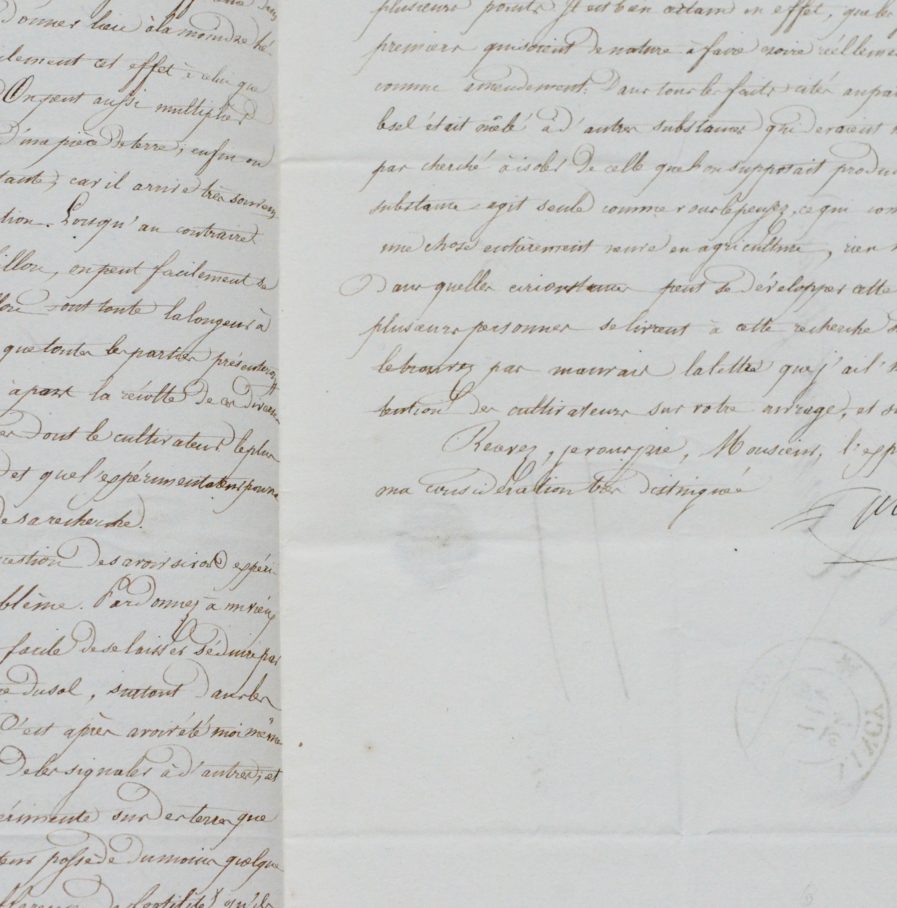 donner lieu à la moindre hé
cet effet à celui que
On peut aussi multiplier
d'une pièce de terre, enfin on
car il arrive très souvent
tion. Lorsqu'au contraire
illon, on peut facilement se
sont toute la longeur à
que toutes les parties présenteront
à part la récolte de ces diverses
dont le cultivateur le plus
et que l'expérimentateur pourra
de sa recherche.
question de savoir si vos expéri-
blème. Pardonnez à un vieux
facile de se laisser séduire par
du sol, surtout dans les
C'est après avoir été moi même
de les signaler à d'autres, et
érimente sur des terres que
teur possède du moins quelque
de fertilité qu'il
plusieurs points. Il est bien certain en effet, que les
premiers qui soient de nature à faire voir réellement
comme amendement. Dans tous les faits cités aupara
le sel était mêlé à d'autres substances qui devaient
pas cherché à isoler de celle que l'on supposait produi
substance agit seule comme vous le pensez, ce qui
une chose entièrement neuve en agriculture, rien
Dans quelles circonstances peut se développer cette
plusieurs personnes se livrent à cette recherche
le trouvez pas mauvais la lettre que j'ai l'
tention des cultivateurs sur votre ouvrage, et
Recevez, je vous prie, Monsieur, l'exp
ma considération très distinguée